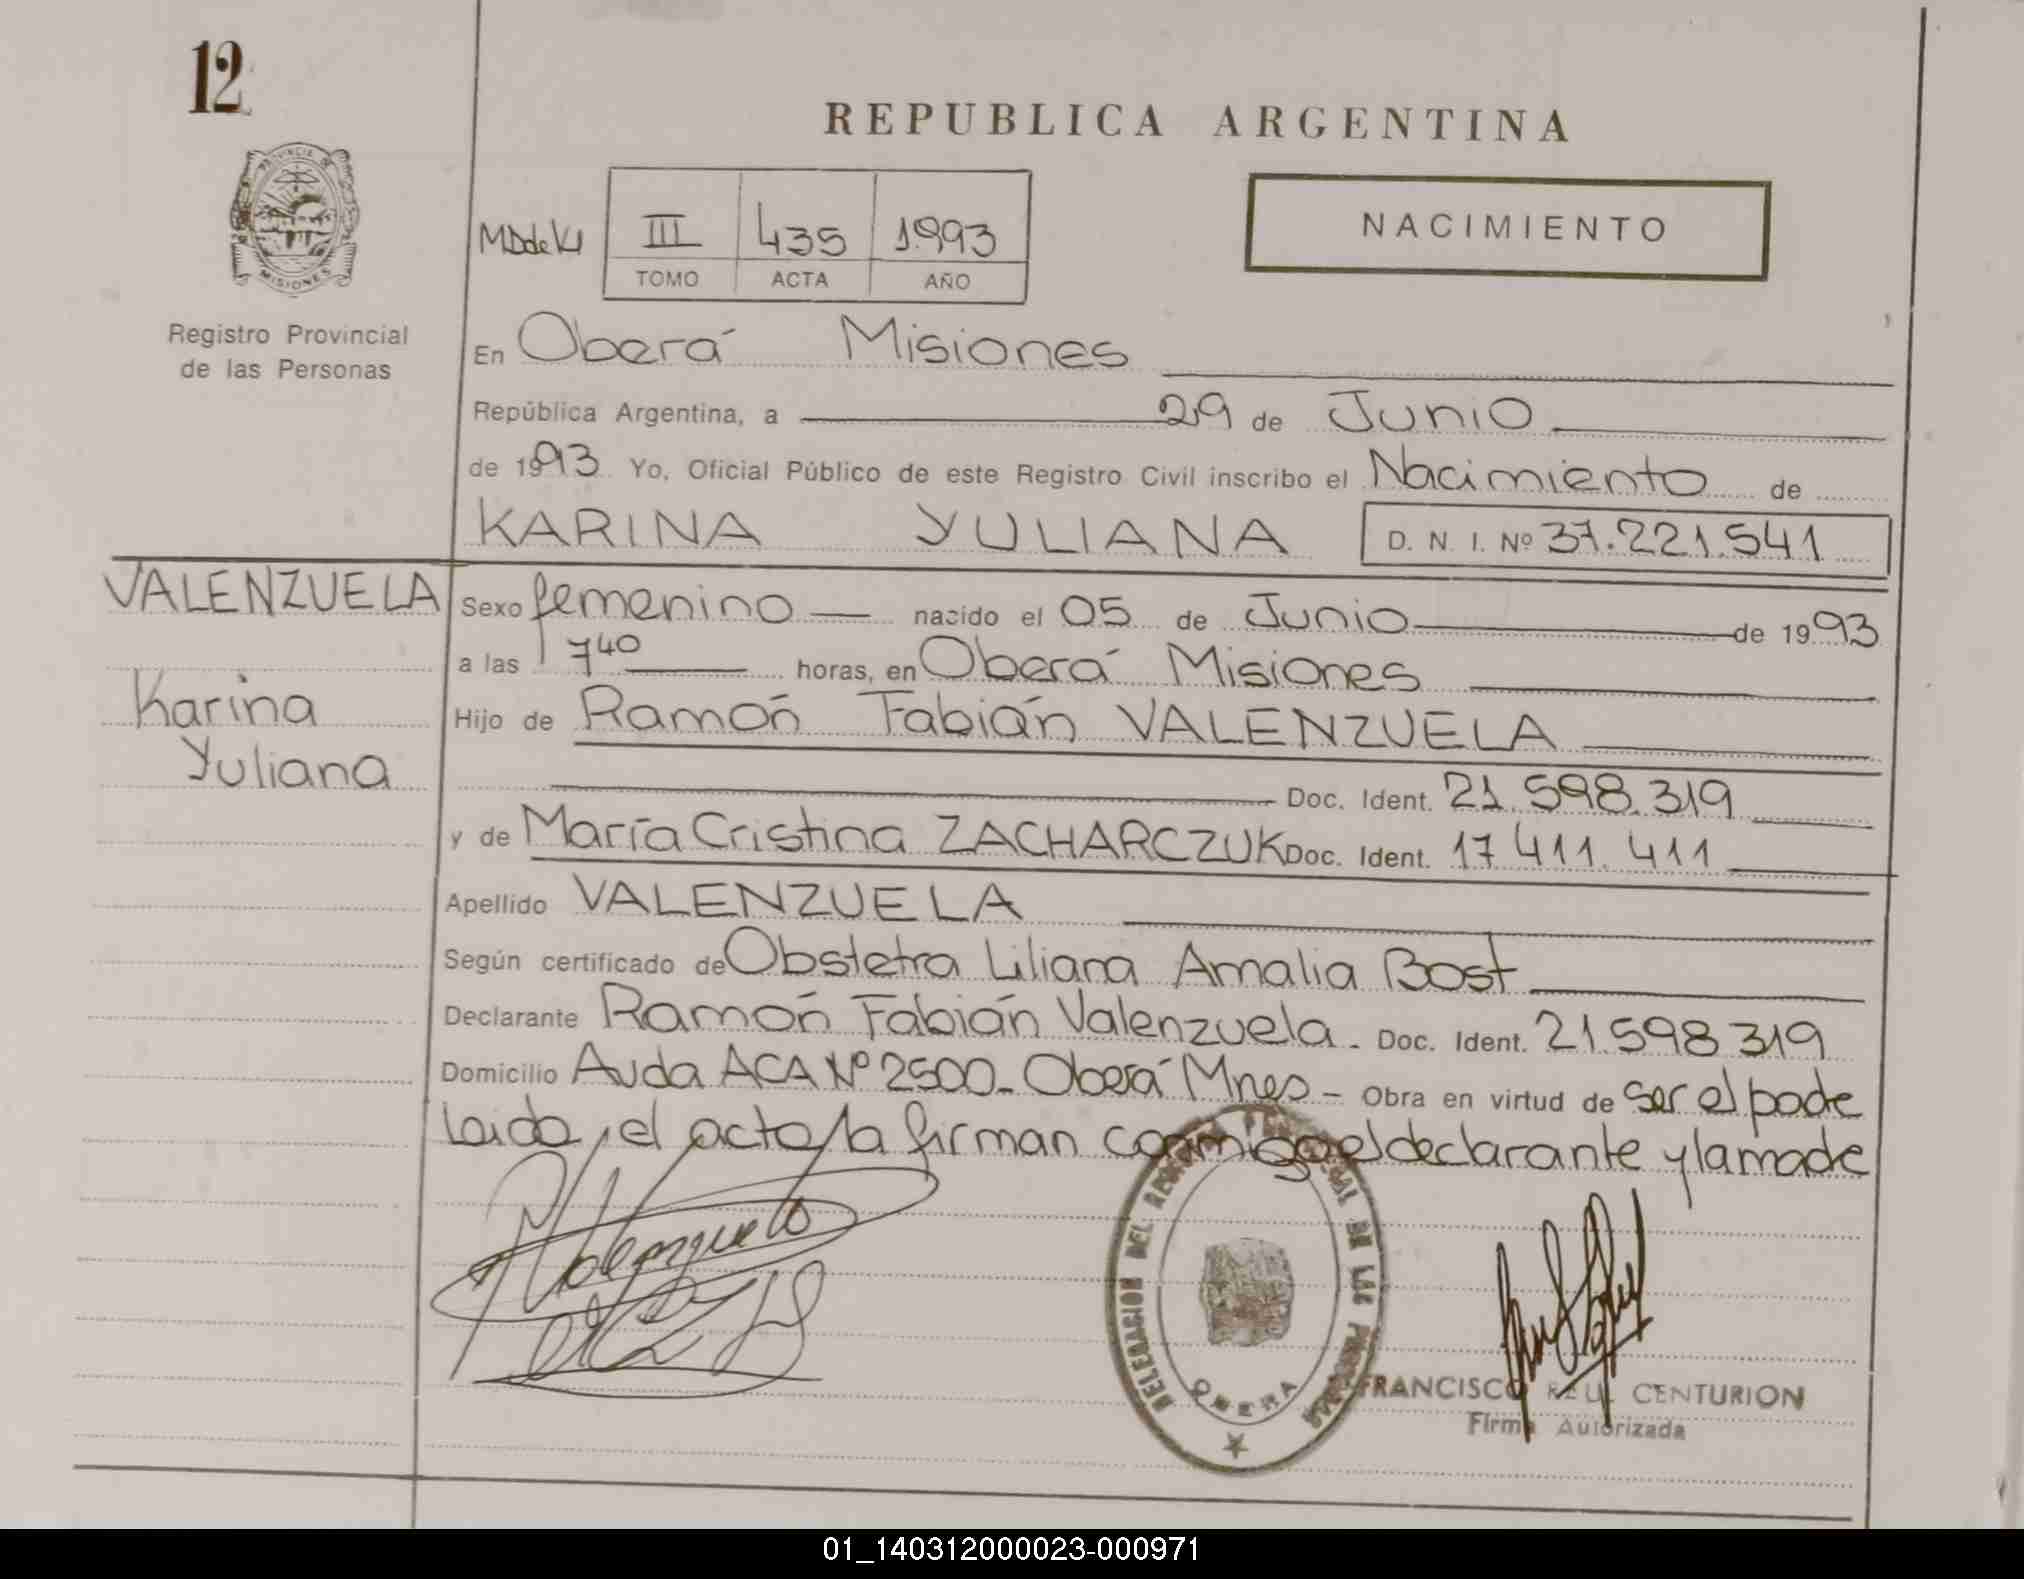 12
REPUBLICA ARGENTINA
PROVINCIA DE MISIONES
Registro Provincial
de las Personas
III 435 1993
TOMO ACTA AÑO
NACIMIENTO
En Oberá Misiones
República Argentina, a 29 de Junio
de 1993 Yo, Oficial Público de este Registro Civil inscribo el Nacimiento de
KARINA YULIANA D. N. I. Nº 37.221.541
VALENZUELA
Karina
Yuliana
Sexo femenino nacido el 05 de Junio de 1993
a las 7 40 horas, en Oberá Misiones
Hijo de Ramón Fabián VALENZUELA
Doc. Ident. 21.598.319
y de María Cristina ZACHARCZUK Doc. Ident. 17 411. 411
Apellido VALENZUELA
Según certificado de Obstetra Liliana Amalia Bost
Declarante Ramón Fabián Valenzuela. Doc. Ident. 21.598 319
Domicilio Avda ACA Nº 2500_ Oberá Mnes - Obra en virtud de ser el padre
Leida el acta la firman conmigo el declarante y la madre
Valenzuela
DELEGACION DEL REGISTRO PROVINCIAL DE LAS PERSONAS
OBERA
FRANCISCO RAUL CENTURION
Firma Autorizada
01_140312000023-000971